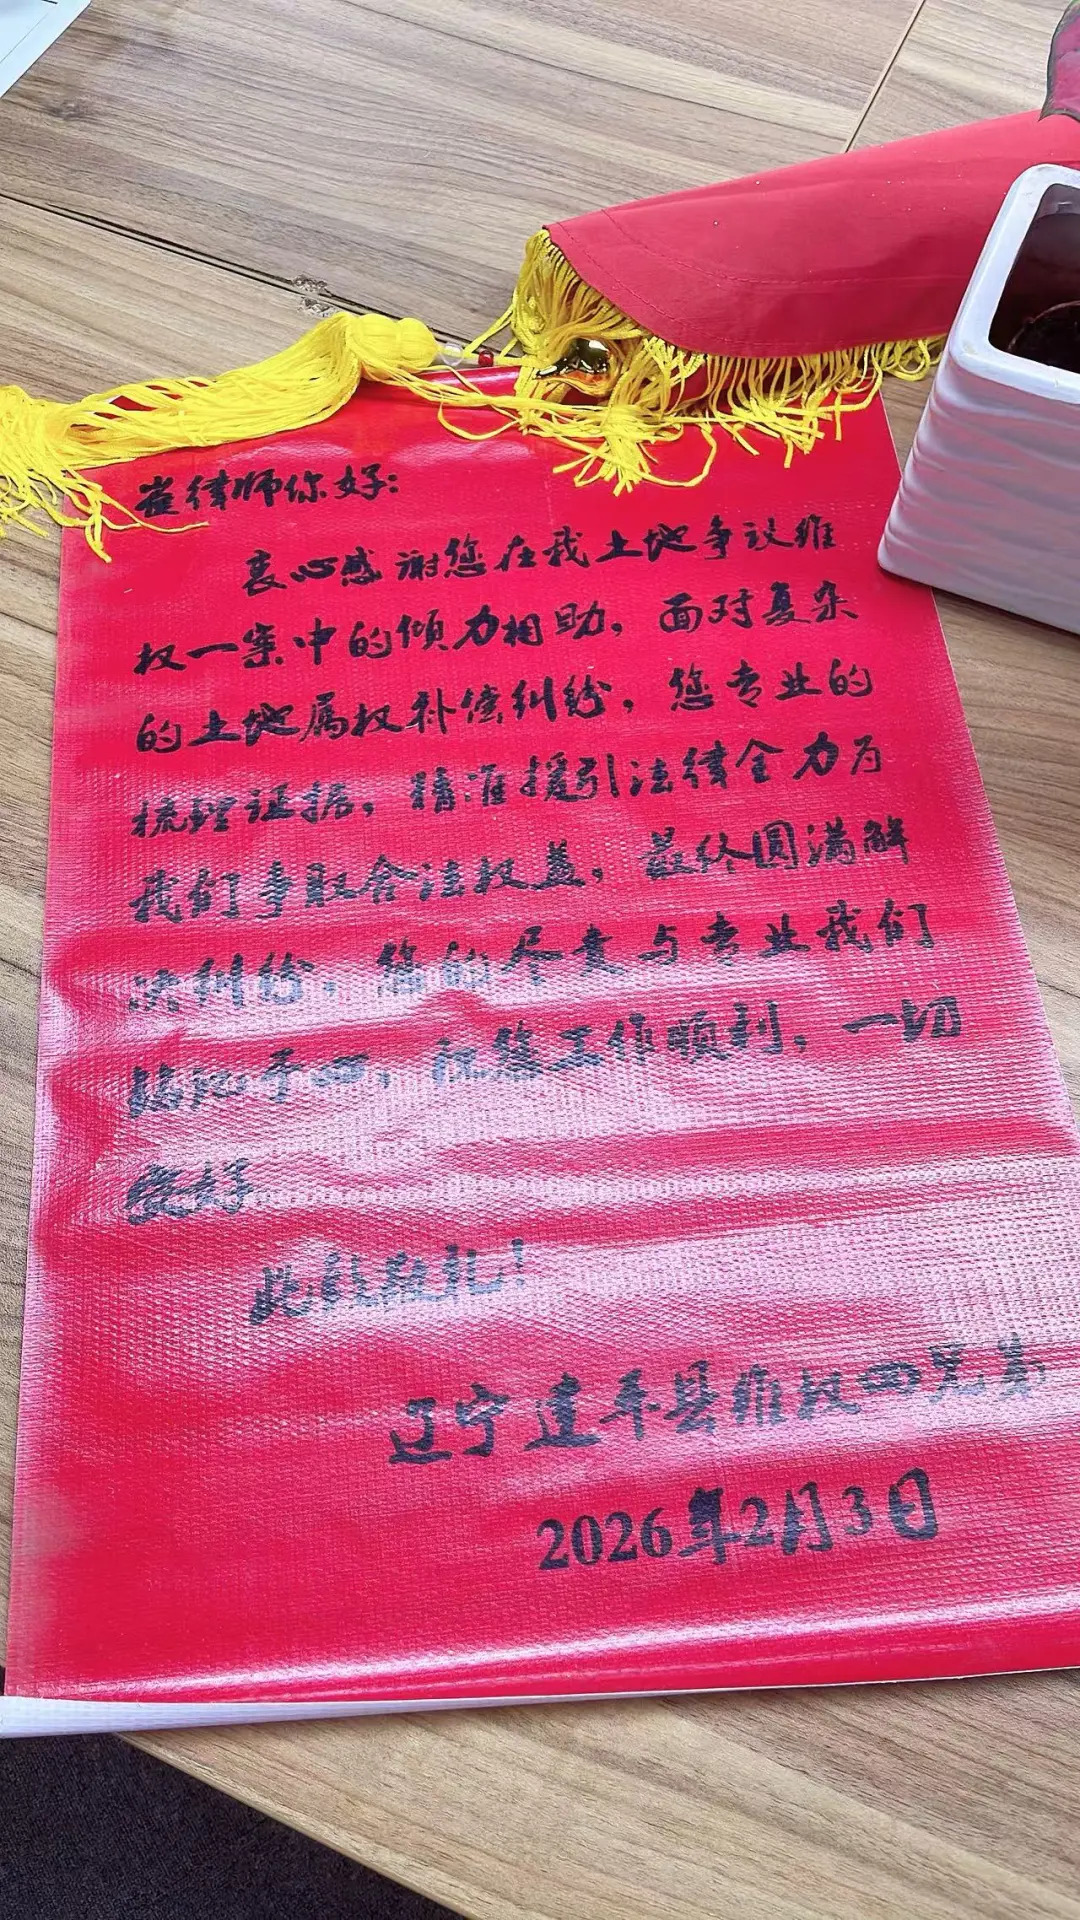 崔律师你好：
衷心感谢您在我土地争议维
权一案中的倾力相助，面对复杂
的土地属权补偿纠纷，您专业的
梳理证据，精准援引法律全力为
我们争取合法权益，最终圆满解
决纠纷，您的尽责与专业我们
铭记于心，祝您工作顺利，一切
安好
此致敬礼！
辽宁建平县维权四兄弟
2026年2月3日